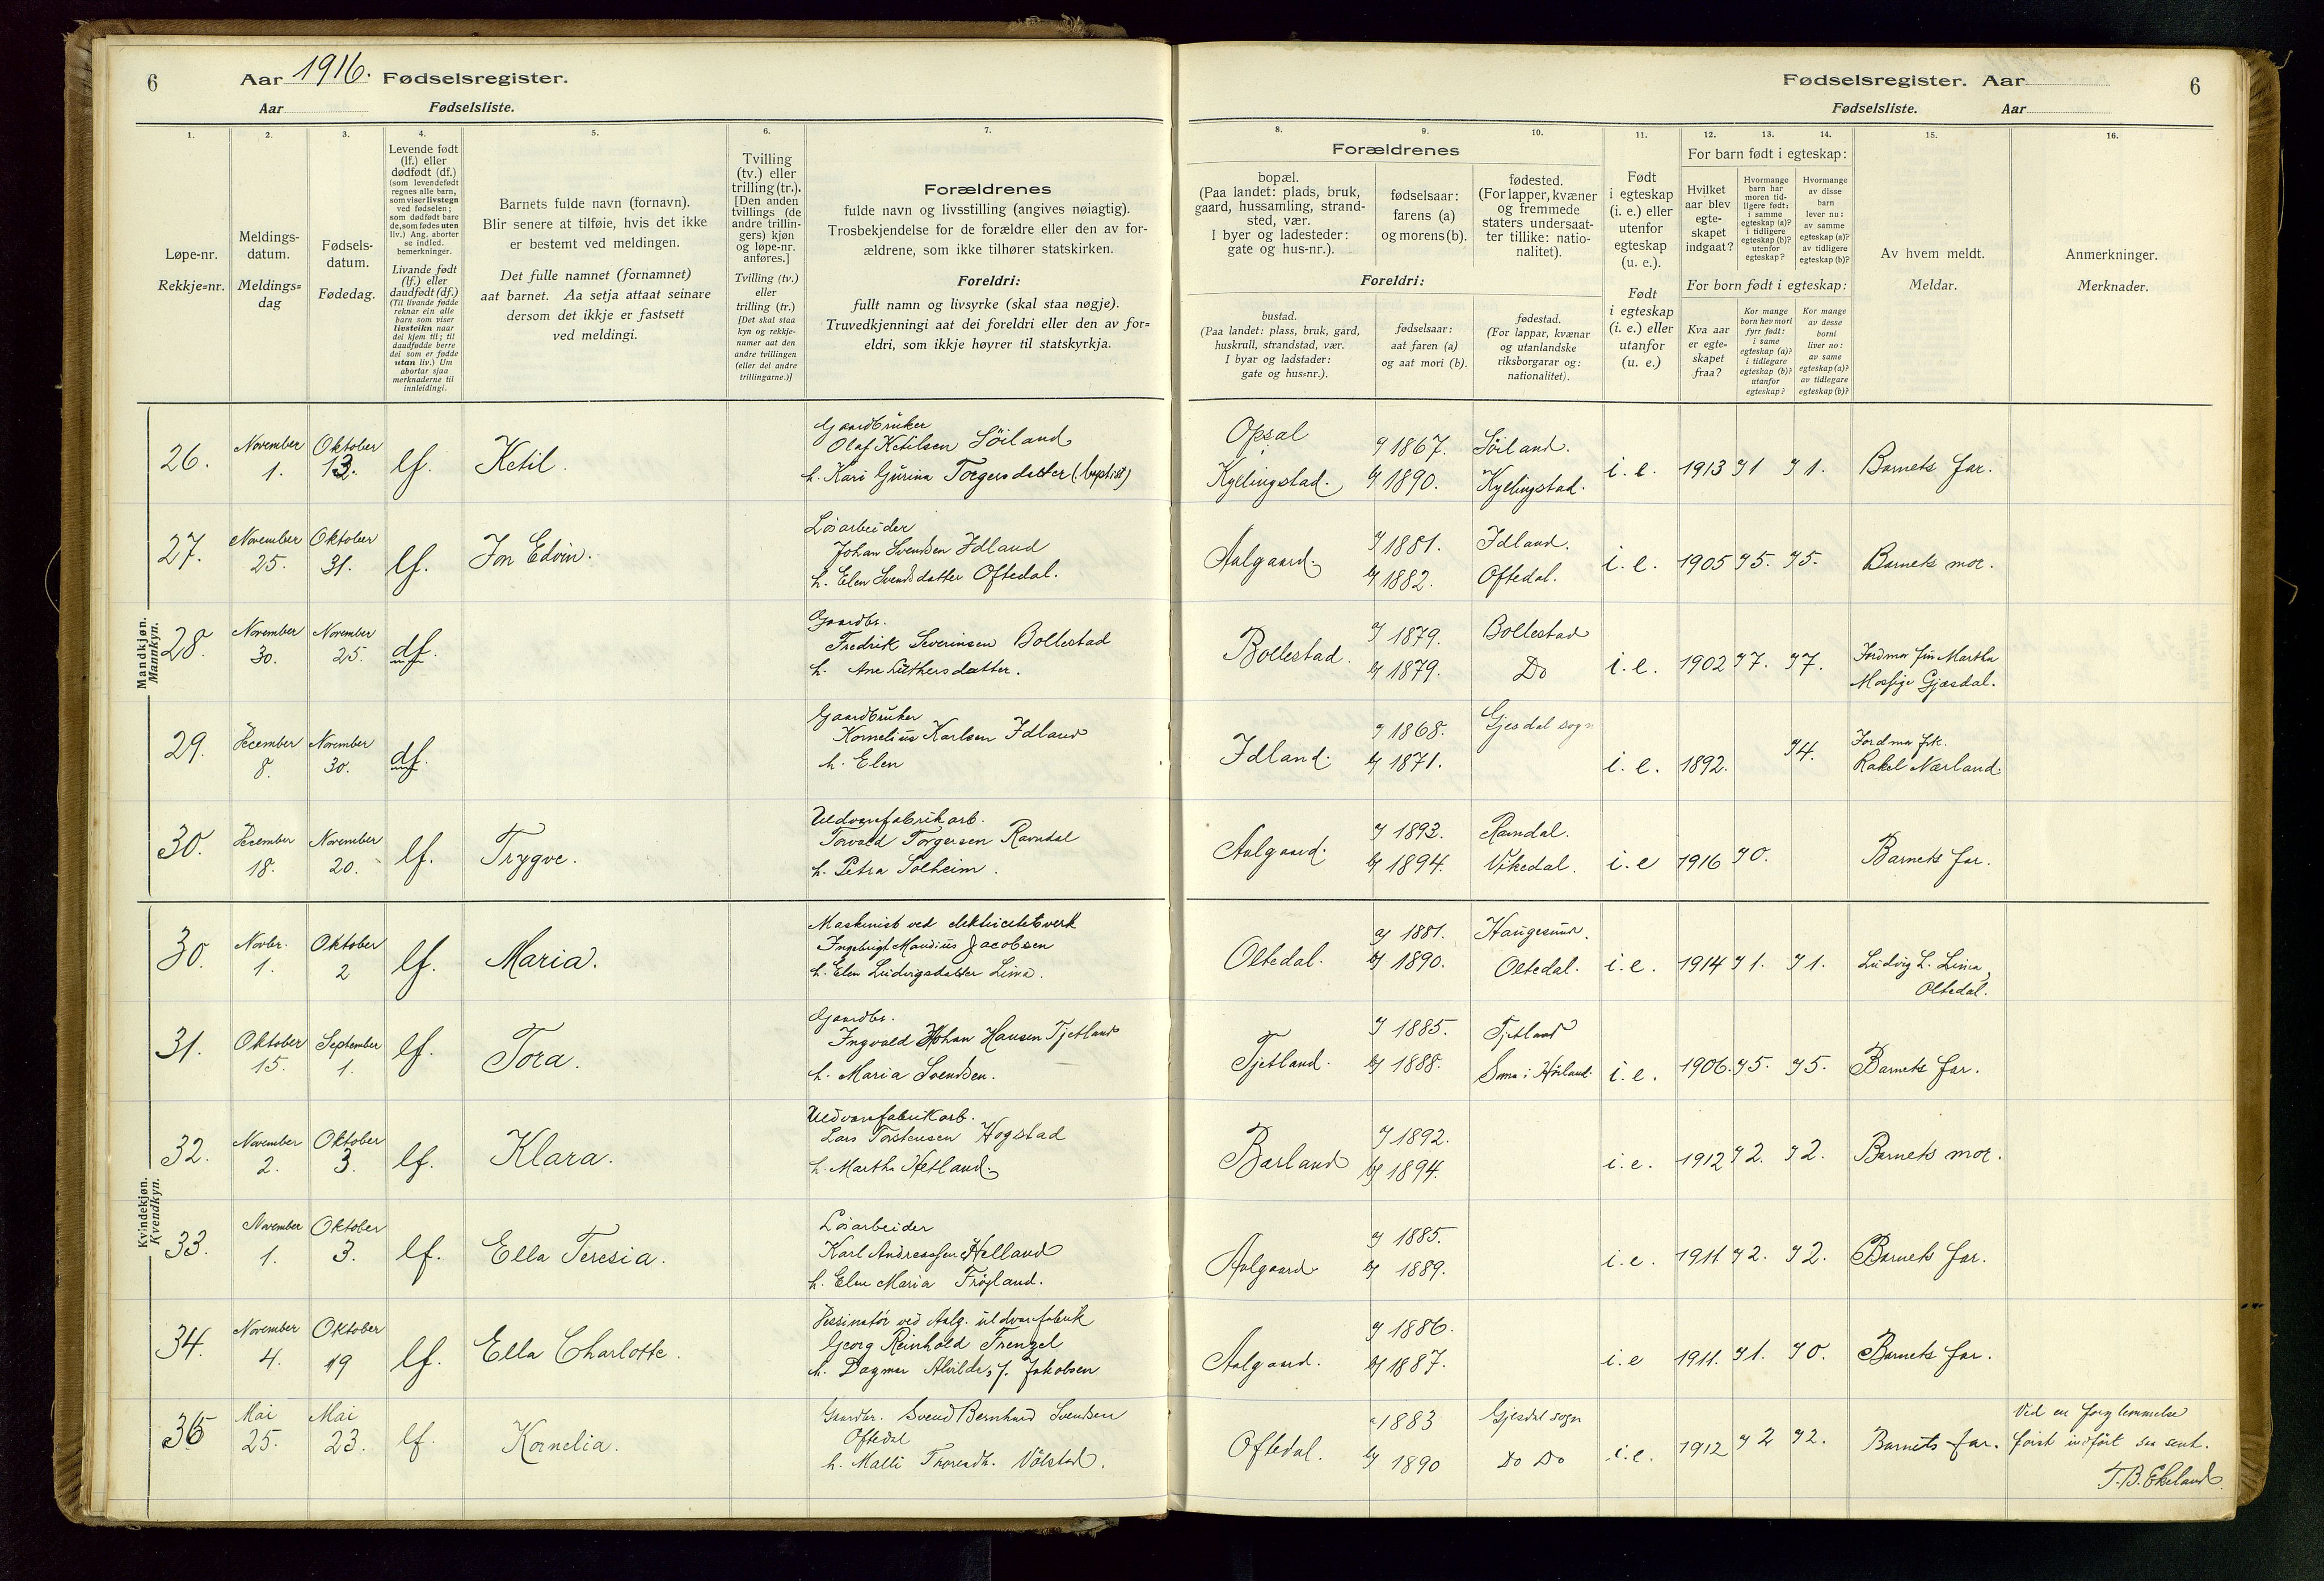 6
Aar 1916. Fødselsregister.
Aar Fødselsliste.
Fødselsregister. Aar
6
Fødselsliste. Aar
1.
2.
3.
4.
5.
6.
7.
8.
9.
10.
11.
12.
13.
14.
15.
16.
Løpe-nr.
Rekkje=nr.
Meldings-
datum.
Meldings=
dag
Fødsels-
datum.
Fødedag.
Levende født
(lf.) eller
dødfødt (df.)
(som levendefødt
regnes alle barn,
som viser livstegn
ved fødselen;
som dødfødt bare
de, som fødes uten
liv.) Ang. aborter
se indled.
bemerkninger.
Livande født
(lf.) eller
daudfødt (df.)
(Til livande fødde
reknar ein alle
barn som viser
livsteikn naar
dei kjem til; til
daudfødde berre
dei som er fødde
utan liv.) Um
abortar sjaa
merknaderne til
innleidingi.
Barnets fulde navn (fornavn).
Blir senere at tilføie, hvis det ikke
er bestemt ved meldingen.
Det fulle namnet (fornamnet)
aat barnet. Aa setja attaat seinare
dersom det ikkje er fastsett
ved meldingi.
Tvilling
(tv.) eller
trilling (tr.).
[Den anden
tvillings (de
andre trillin-
gers) kjøn
og løpe-nr.
anføres.]
Tvilling (tv.)
eller
trilling (tr.)
[Det skal staa
kyn og rekkje-
numer aat den
andre tvillingen
(eller dei andre
trillingarne.)]
Forældrenes
fulde navn og livsstilling (angives nøiagtig).
Trosbekjendelse for de forældre eller den av for-
ældrene, som ikke tilhører statskirken.
Foreldri:
fullt namn og livsyrke (skal staa nøgje).
Truvedkjenningi aat dei foreldri eller den av for=
eldri, som ikkje høyrer til statskyrkja.
Forældrenes
bopæl.
(Paa landet: plads, bruk,
gaard, hussamling, strand-
sted, vær.
I byer og ladesteder:
gate og hus-nr.).
fødselsaar:
farens (a)
og morens (b).
fødested.
(For lapper, kvæner
og fremmede
staters undersaat-
ter tillike: natio-
nalitet).
Foreldri:
bustad.
(Paa landet: plass, bruk, gard,
huskrull, strandstad, vær.
I byar og ladstader:
gate og hus=nr.).
fødselsaar:
aat faren (a)
og aat mori (b).
fødestad.
(For lappar, kvænar
og utanlandske
riksborgarar og:
nationalitet).
Født
i egteskap
(i. e.) eller
utenfor
egteskap
(u. e.).
Født
i egteskap
(i. e.) eller
utanfor
(u. e.)
For barn født i egteskap:
Hvilket
aar blev
egte-
skapet
indgaat?
Hvormange
barn har
moren tid-
ligere født:
i samme
egteskap (a)?
i tidligere
egteskap (b)?
utenfor
egteskap?
Hvormange
av disse
barn
lever nu:
av samme
egteskap (a)?
av tidligere
egteskap (b)?
For born født i egteskap:
Kva aar
er egte=
skapet
fraa?
Kor mange
born hev mori
fyrr født:
i same
egteskap (a)?
i tidlegare
egteskap (b)?
utanfor
egteskap?
Kor mange
av desse
borni
liver no:
av same
egteskap (a)?
av tidlegare
egteskap (b)?
Av hvem meldt.
Meldar.
Anmerkninger.
Merknader.
Mandkjøn.
Mannkyn.
26. November 1. Oktober 13. lf. Ketil.
Gaardbruker
Olaf Ketilsen Söiland
h. Kari Gurina Torgersdatter (baptist)
Opsal
Kyllingstad.
a) 1867.
b) 1890.
Söiland.
Kyllingstad.
i. e. 1913 a) 1 a) 1. Barnets far.
27. November 25. Oktober 31. lf. Jon Edvin.
Løsarbeider
Johan Svendsen Idland
h. Elen Svendsdatter Oftedal.
Aalgaard.
a) 1881.
b) 1882.
Idland.
Oftedal.
i. e. 1905 a) 5. a) 5. Barnets mor.
28. November 30. November 25. df.
Gaardbr.
Fredrik Severinsen Bollestad
h. Ane Luthersdatter.
Bollestad.
a) 1879.
b) 1879.
Bollestad
Do
i. e. 1902 a) 7. a) 7.
Jordmor fru Martha
Mossige Gjesdal.
29. December 8. November 30. df.
Gaardbruker
Kornelius Karlsen Idland
h. Elen
Idland.
a) 1868.
b) 1871.
Gjesdal sogn
i. e. 1892. a) 4.
Jordmor frk.
Rakel Nærland.
30. December 18. November 20. lf. Trygve.
Uldvarefabrikarb.
Torvald Torgersen Ravndal
h. Petra Solheim.
Aalgaard.
a) 1893.
b) 1894.
Ravndal.
Vikedal.
i. e 1916 a) 0. Barnets far.
Kvindekjøn.
Kvendkyn.
30. Novbr. 1. Oktober 2 lf. Maria.
Maskinist ved elektricitetsverk
Ingebrigt Maudius Jacobsen
h. Elen Ludvigsdatter Lima.
Oltedal.
a) 1881.
b) 1890.
Haugesund.
Oltedal.
i. e. 1914 a) 1. a) 1.
Ludvig L. Lima,
Oltedal.
31. Oktober 15. September 1. lf. Tora.
Gaardbr.
Ingvald Johan Hansen Tjetland
h. Maria Svendsen.
Tjetland.
a) 1885.
b) 1888.
Tjetland
Soma i Höiland.
i. e. 1906. a) 5. a) 5. Barnets far.
32. November 2. Oktober 3. lf. Klara.
Uldvarefabrikarb.
Lars Torstensen Hogstad
h. Martha Hetland.
Bærland
a) 1892.
b) 1894.
i. e. 1912 a) 2. a) 2. Barnets mor.
33. November 1. Oktober 3. lf. Ella Teresia.
Løsarbeider
Karl Andreassen Helland
h. Elen Maria Fröyland.
Aalgaard
a) 1885.
b) 1889.
i. e. 1911 a) 2. a) 2. Barnets far.
34. November 4. Oktober 19 lf. Ella Charlotte.
Dessinatör ved Aalg. uldvarefabrik
Georg Reinhold Frenzel
h. Dagmar Alvilde, f. Jakobsen
Aalgaard.
a) 1886.
b) 1887.
i. e 1911. a) 1. a) 0. Barnets far.
35 Mai 25. Mai 23. lf. Kornelia.
Gaardbr. Svend Bernhard Svendsen
Oftedal
h. Malli Thoresdtr. Völstad.
Oftedal.
a 1883
b) 1890
Gjesdal sogn
Do Do
i. e. 1912 a) 2 a) 2. Barnets far.
Ved en forglemmelse
først indført saa sent.
T. B. Ekeland.